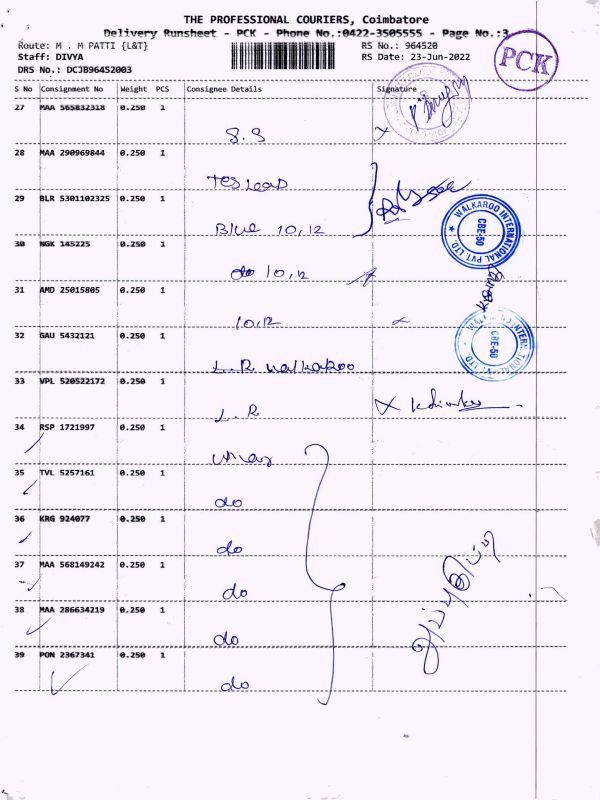 THE PROFESSIONAL COURIERS, Coimbatore
Delivery Runsheet - PCK - Phone No.:0422-3505555 - Page No.:3
Route: M . M PATTI {L&T} RS No.: 964520
Staff: DIVYA RS Date: 23-Jun-2022
DRS No.: DCJB96452003
PCK
S No Consignment No Weight PCS Consignee Details Signature
27 MAA 565832318 0.250 1
S.S
28 MAA 290969844 0.250 1
29 BLR 5301102325 0.250 1
Blue 10,12
30 NGK 145225 0.250 1
do 10,12
31 AMD 25015805 0.250 1
10,12
32 GAU 5432121 0.250 1
L.R walkaroo
33 VPL 520522172 0.250 1
L.R
34 RSP 1721997 0.250 1
35 TVL 5257161 0.250 1
do
36 KRG 924077 0.250 1
do
37 MAA 568149242 0.250 1
do
38 MAA 286634219 0.250 1
do
39 PON 2367341 0.250 1
do
WALKAROO INTERNATIONAL PVT. LTD.
CBE-50
WALKAROO INTERNATIONAL PVT. LTD.
CBE-50